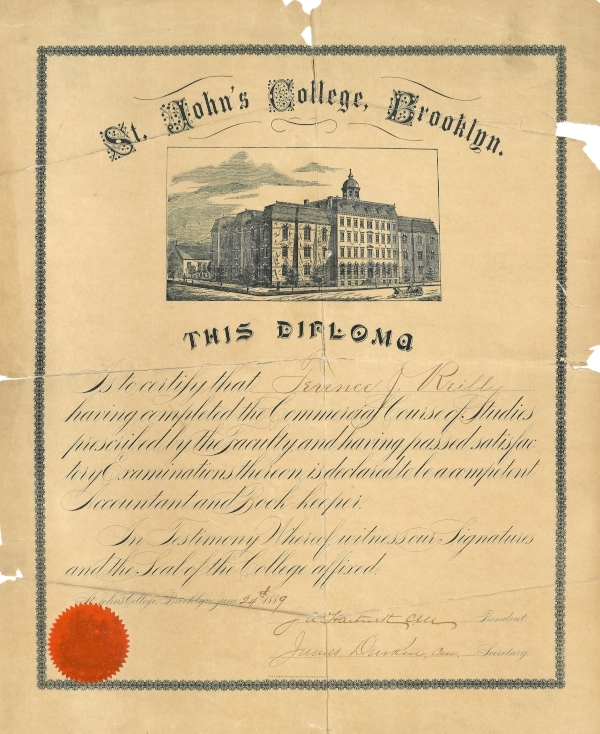 St. John's College, Brooklyn.
THIS DIPLOMA
Is to certify that Terence J Reilly
having completed the Commercial Course of Studies
prescribed by the Faculty and having passed satisfac
tory Examinations thereon is declared to be a competent
Accountant and Book-keeper.
In Testimony Whereof witness our Signatures
and the Seal of the College affixed.
St. John's College, Brooklyn, June 24th 1889
J A Hartnett CM President
James Durkin, CM Secretary